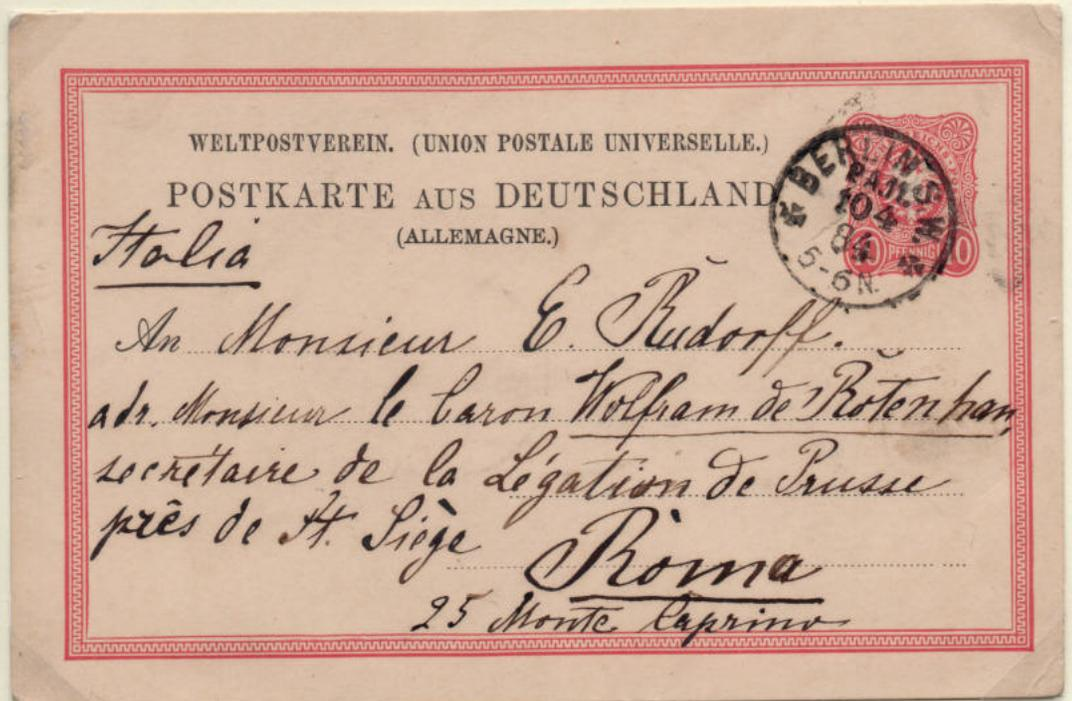 WELTPOSTVEREIN. (UNION POSTALE UNIVERSELLE.)
POSTKARTE AUS DEUTSCHLAND
(ALLEMAGNE.)
BERLIN S.W.
10 4
84
5-6N.
10 PFENNIG 10
Italia
An Monsieur E. Rudorff.
adr. Monsieur le baron Wolfram de Rotenhan,
secrétaire de la Légation de Prusse
près de St. Siège
Roma
25 Monte Caprino